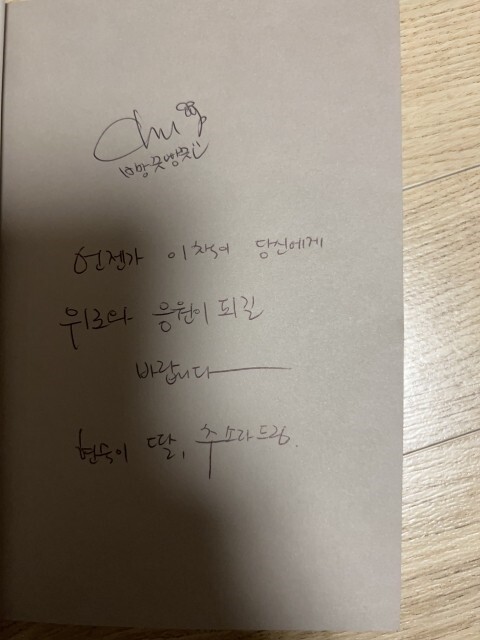 Chu
언젠가 이 책이 당신에게
위로와 응원이 되길
바랍니다
현숙이 딸, 추소라 드림.